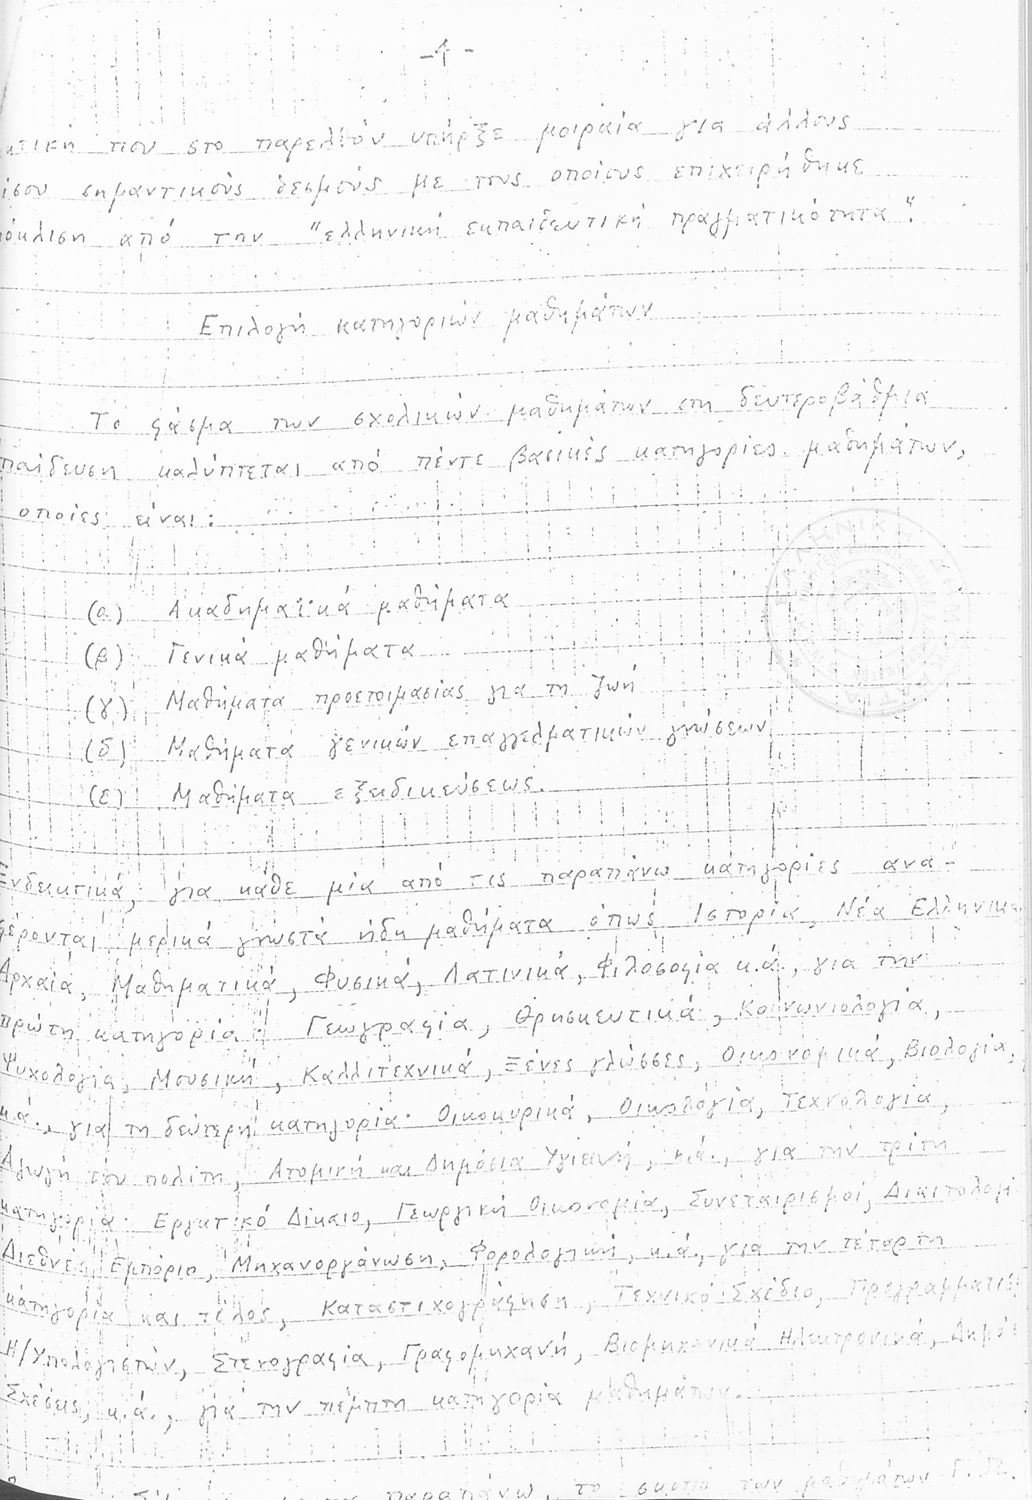 -4-
που στο παρελθόν υπήρξε μοιραία για άλλους
ίσου σημαντικούς δεσμούς με τους οποίους επιχειρήθηκε
όκλιση από την "ελληνική εκπαιδευτική πραγματικότητα".
Επιλογή κατηγοριών μαθημάτων
Το φάσμα των σχολικών μαθημάτων στη δευτεροβάθμια
παίδευση καλύπτεται από πέντε βασικές κατηγορίες μαθημάτων,
οποίες είναι:
(α) Ακαδημαϊκά μαθήματα
(β) Γενικά μαθήματα
(γ) Μαθήματα προετοιμασίας για τη ζωή
(δ) Μαθήματα γενικών επαγγελματικών γνώσεων
(ε) Μαθήματα εξειδικεύσεως.
Ενδεικτικά, για κάθε μία από τις παραπάνω κατηγορίες ανα-
φέρονται μερικά γνωστά ήδη μαθήματα όπως Ιστορία, Νέα Ελληνικά
Αρχαία, Μαθηματικά, Φυσικά, Λατινικά, Φιλοσοφία κ.ά., για την
πρώτη κατηγορία· Γεωγραφία, Θρησκευτικά, Κοινωνιολογία,
Ψυχολογία, Μουσική, Καλλιτεχνικά, Ξένες γλώσσες, Οικονομικά, Βιολογία,
κ.ά., για τη δεύτερη κατηγορία· Οικοκυρικά, Οικολογία, Τεχνολογία,
Αγωγή του πολίτη, Ατομική και Δημόσια Υγιεινή, κ.ά., για την τρίτη
κατηγορία· Εργατικό Δίκαιο, Γεωργική Οικονομία, Συνεταιρισμοί, Διαιτολογ
Διεθνές Εμπόριο, Μηχανοργάνωση, Φορολογική, κ.ά., για την τέταρτη
κατηγορία και τέλος, Καταστιχογράφηση, Τεχνικό Σχέδιο, Προγραμματισ
Η/Υπολογιστών, Στενογραφία, Γραφομηχανή, Βιομηχανικά Ηλεκτρονικά, Δημό
Σχέσεις, κ.ά., για την πέμπτη κατηγορία μαθημάτων.
παραπάνω, το σκοπό των μαθημάτων Γ.Π.
ΕΛΛΗΝΙΚΗ ΔΗΜΟΚΡΑΤΙΑ